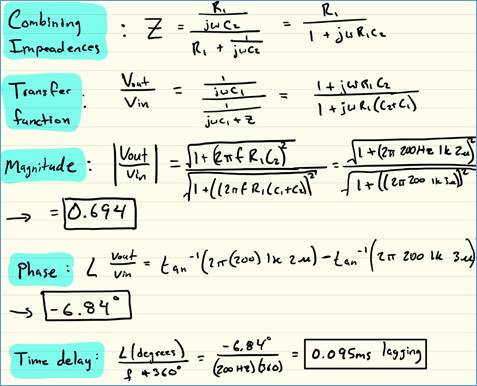 Combining Impedences : Z = (R₁/(jωC₂)) / (R₁ + 1/(jωC₂)) = R₁ / (1 + jωR₁C₂)
Transfer function : Vout/Vin = (1/(jωC₁)) / (1/(jωC₁) + Z) = (1 + jωR₁C₂) / (1 + jωR₁(C₂+C₁))
Magnitude : |Vout/Vin| = √(1 + (2πf R₁C₂)²) / √(1 + ((2πf R₁(C₁+C₂))²) = √(1 + (2π 200Hz 1k 2u)²) / √(1 + ((2π 200 1k 3u))²)
→ = 0.694
Phase : ∠ Vout/Vin = tan⁻¹(2π(200) 1k 2u) - tan⁻¹(2π 200 1k 3u)
→ -6.84°
Time delay : ∠(degrees) / (f * 360°) = -6.84° / ((200Hz)(360)) = 0.095ms lagging